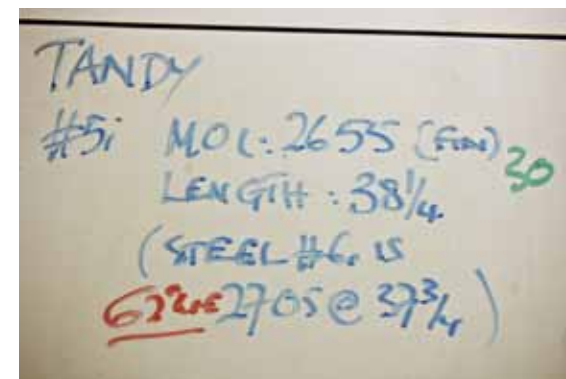 TANDY
#5i MOI: 2655 (FIN) 30
LENGTH: 38 1/4
(STEEL #6i IS
2705 @ 37 3/4)